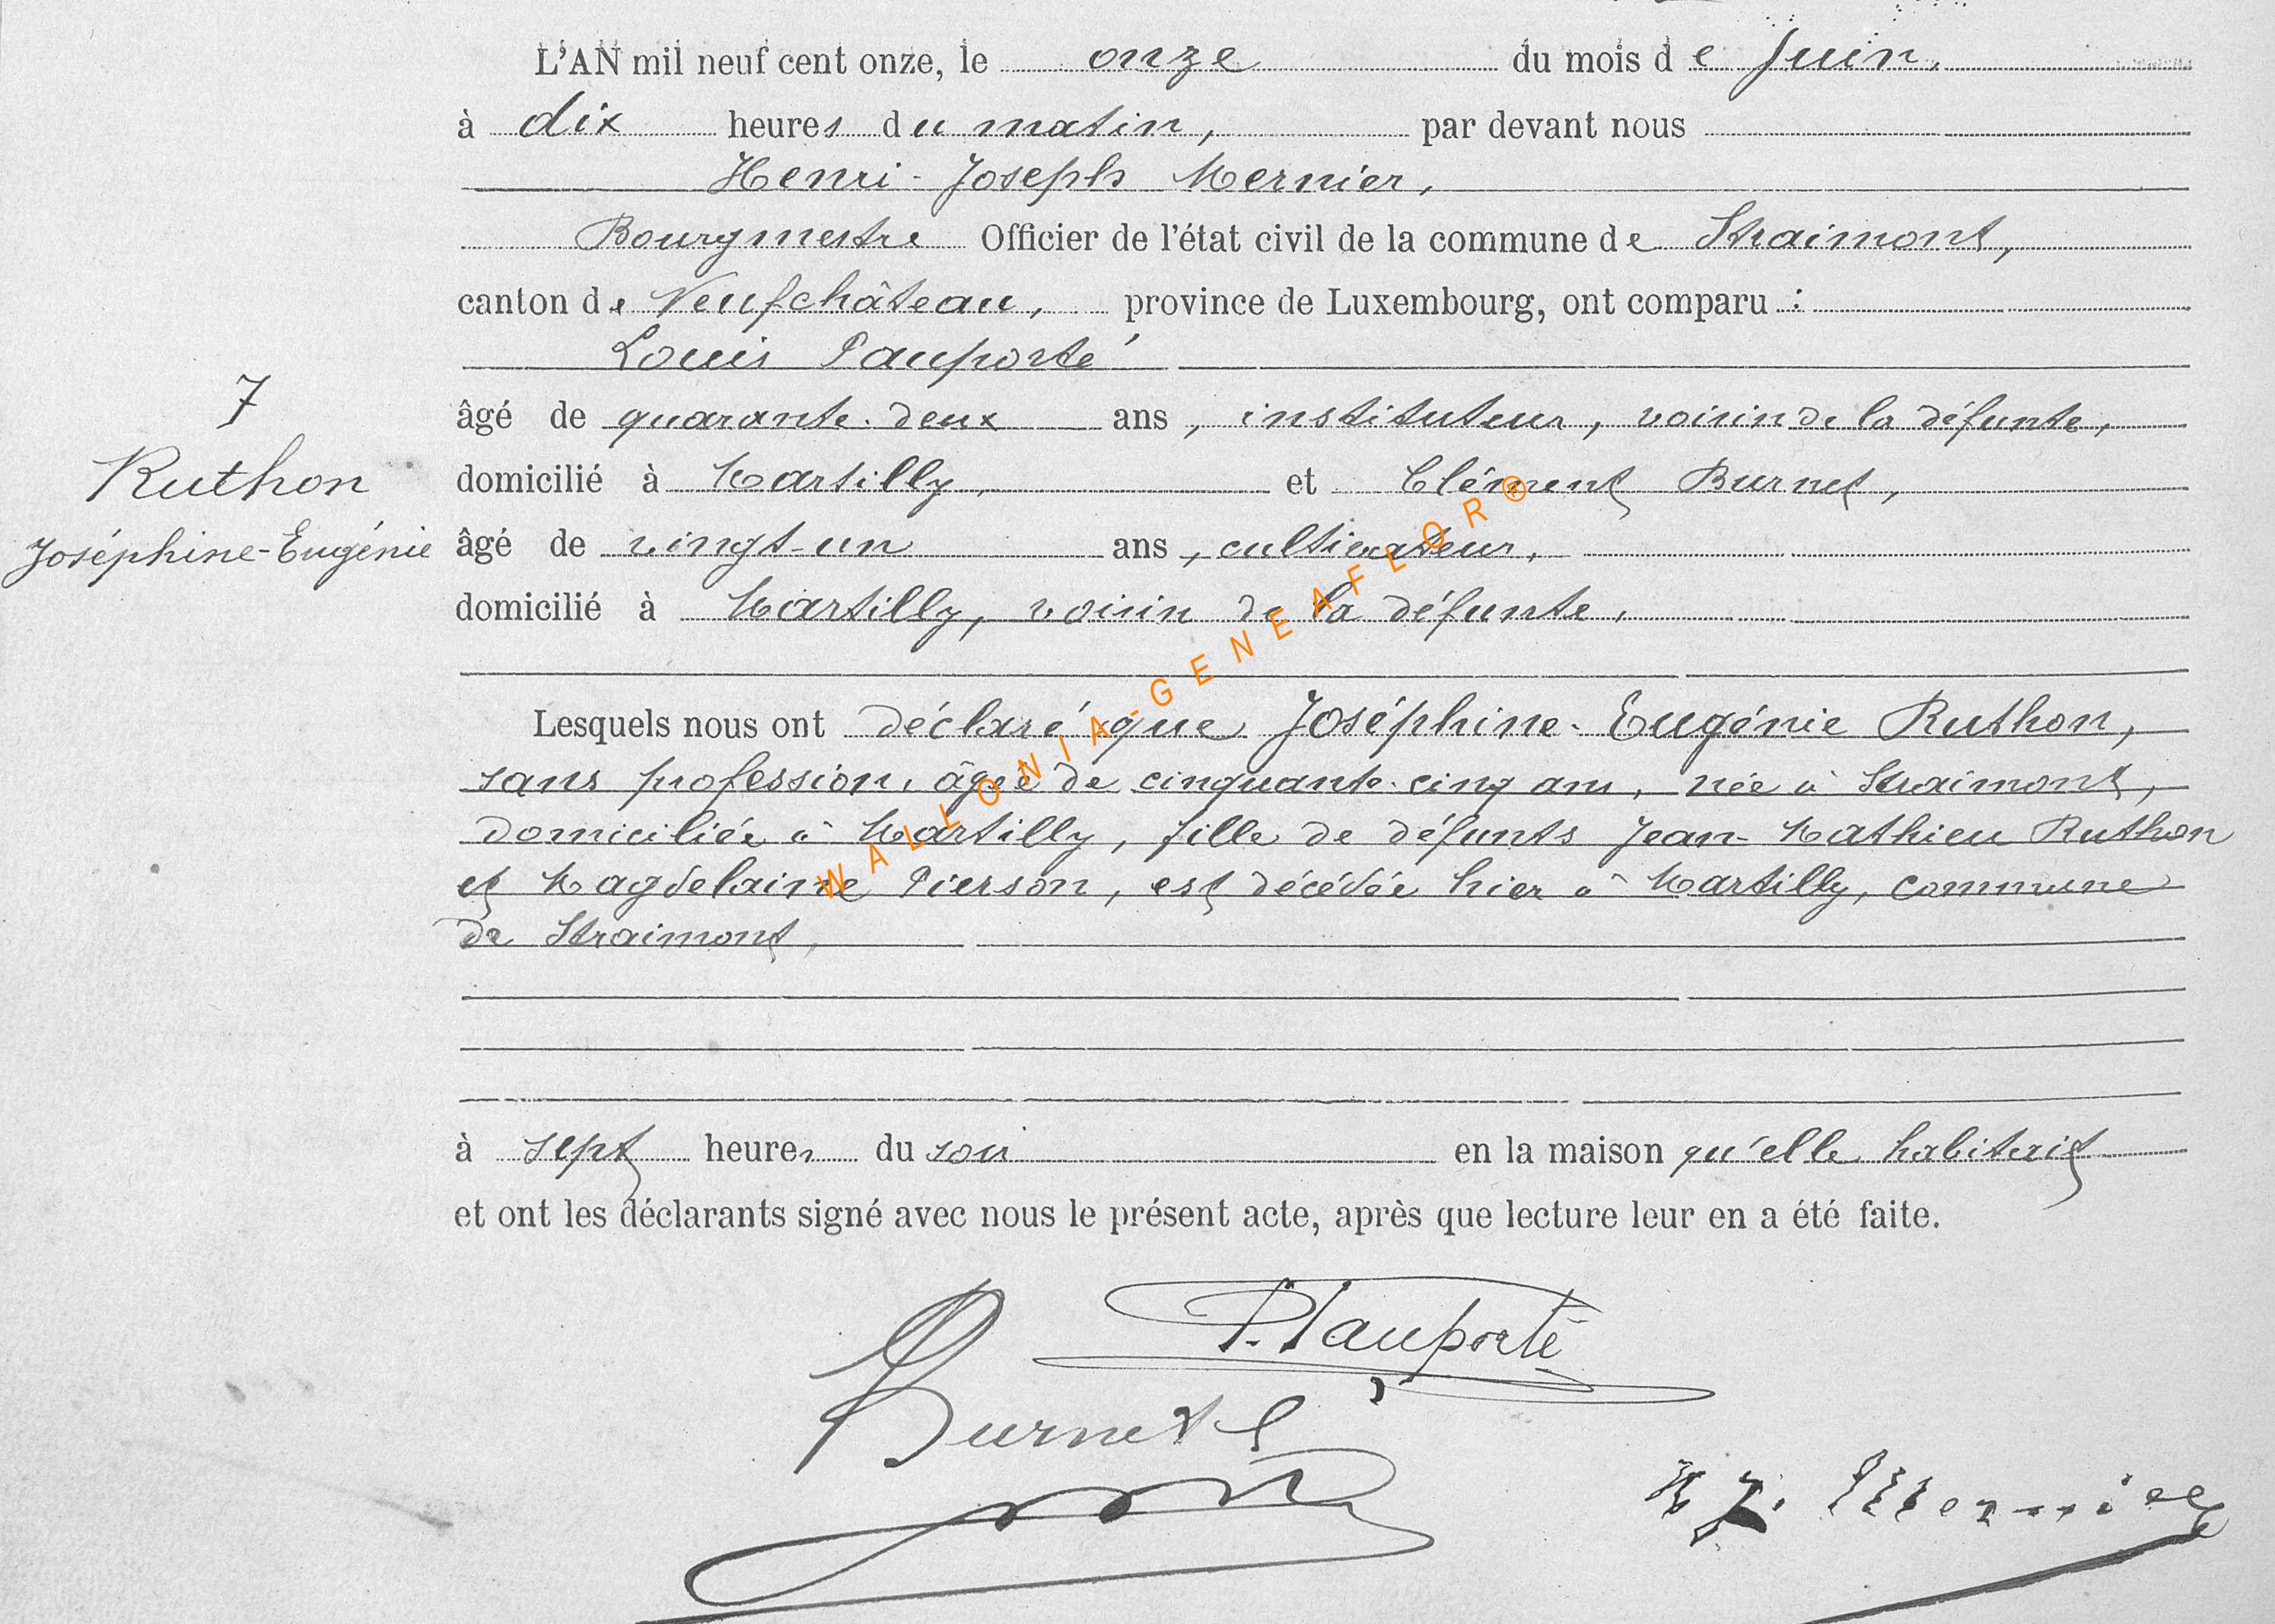 L'AN mil neuf cent onze, le onze du mois de Juin,
à dix heures du matin, par devant nous
Henri-Joseph Mernier,
Bourgmestre Officier de l'état civil de la commune de Straimont,
canton de Neufchâteau, province de Luxembourg, ont comparu :
Louis Pauporté
7
âgé de quarante-deux ans, instituteur, voisin de la défunte,
Ruthon
domicilié à Martilly, et Clément Burnet,
Joséphine-Eugénie
âgé de vingt-un ans, cultivateur,
domicilié à Martilly, voisin de la défunte,
Lesquels nous ont déclaré que Joséphine-Eugénie Ruthon,
sans profession, âgée de cinquante-cinq ans, née à Straimont,
domiciliée à Martilly, fille de défunts Jean-Mathieu Ruthon
et Magdelaine Pierson, est décédée hier à Martilly, commune
de Straimont,
à sept heures du soir en la maison qu'elle habitait
et ont les déclarants signé avec nous le présent acte, après que lecture leur en a été faite.
Pauporté
Burnet C
H J. Mernier
WALLONIA-GENEAFLOR®